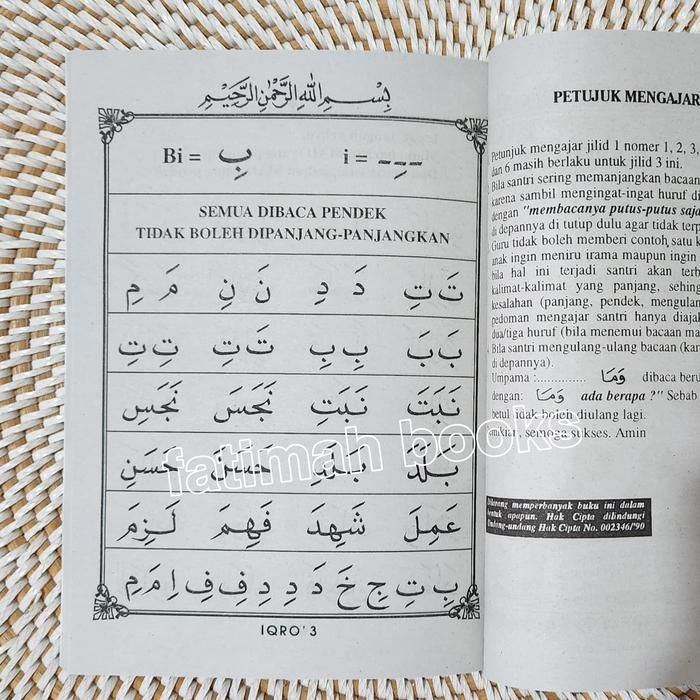 بِسْمِ اللهِ الرَّحْمٰنِ الرَّحِيْمِ
Bi = بِ i = ـِـ
SEMUA DIBACA PENDEK
TIDAK BOLEH DIPANJANG-PANJANGKAN
تَ تِ دَ دِ نَ نِ مَ مِ
بَ بَ بِ بِ تَ تِ تِ تِ
نَبَتَ نَبَتِ نَجَسَ نَجَسِ
بَلَدَ بَلَدِ حَسَنَ حَسَنِ
عَمِلَ شَهِدَ فَهِمَ لَزِمَ
بِ تِ جِ خَ دَ دِ دِ فِ فِ اِ مَ مِ
IQRO' 3
PETUJUK MENGAJAR
Petunjuk mengajar jilid 1 nomer 1, 2, 3,
dan 6 masih berlaku untuk jilid 3 ini.
Bila santri sering memanjangkan bacaan
karena sambil mengingat-ingat huruf di
dengan "membacanya putus-putus saja
di depannya di tutup dulu agar tidak terp
Guru tidak boleh memberi contoh, satu k
anak ingin meniru irama maupun ingin
bila hal ini terjadi santri akan terb
kalimat-kalimat yang panjang, sehing
kesalahan (panjang, pendek, mengulan
pedoman mengajar santri hanya diajak
dua/tiga huruf (bila menemui bacaan ma
Bila santri mengulang-ulang bacaan (kar
di depannya).
Umpama :.............. وَمَا dibaca beru
dengan: وَمَا ada berapa ?" Sebab
betul tidak boleh diulang lagi.
semoga sukses. Amin
Dilarang memperbanyak buku ini dalam
bentuk apapun. Hak Cipta dilindungi
Undang-undang Hak Cipta No. 002346/'90
fatimah books